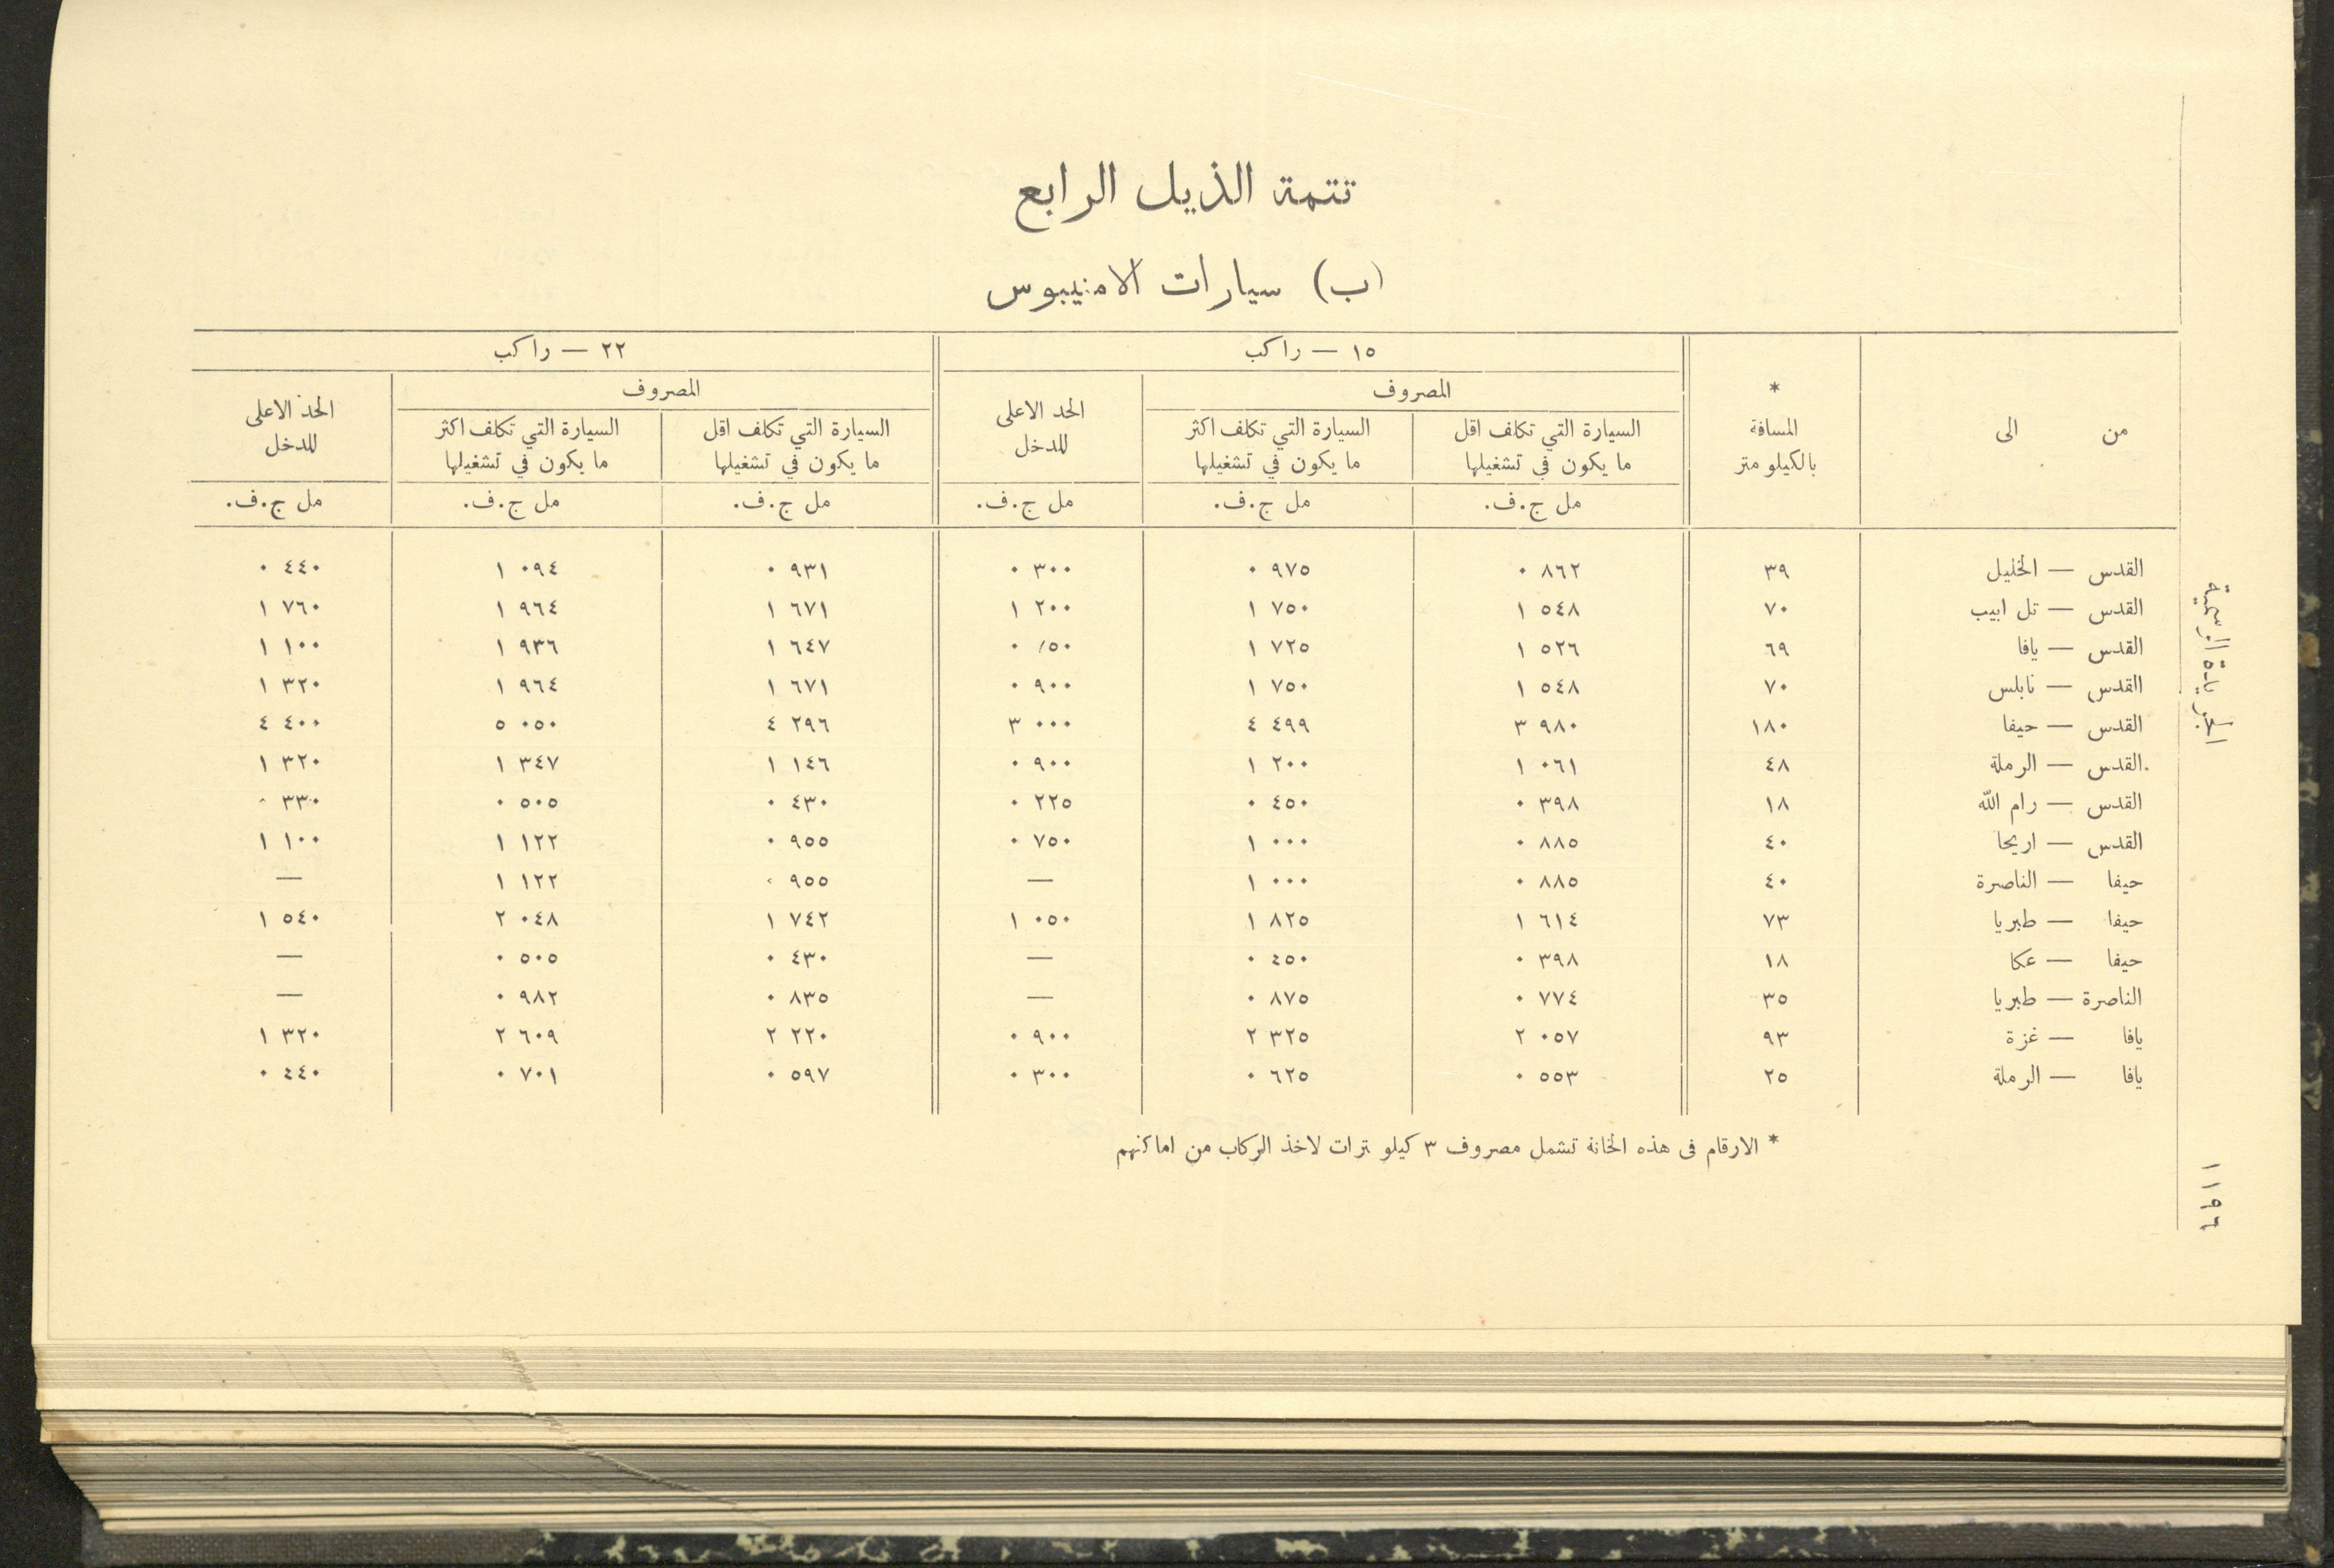 تتمة الذيل الرابع
(ب) سيارات الامنيبوس
من الى * المسافة بالكيلو متر ١٥ — راكب ٢٢ — راكب
المصروف الحد الاعلى للدخل المصروف الحد الاعلى للدخل
السيارة التي تكلف اقل ما يكون في تشغيلها السيارة التي تكلف اكثر ما يكون في تشغيلها السيارة التي تكلف اقل ما يكون في تشغيلها السيارة التي تكلف اكثر ما يكون في تشغيلها
مل ج.ف. مل ج.ف. مل ج.ف. مل ج.ف. مل ج.ف. مل ج.ف.
القدس — الخليل ٣٩ ٨٦٢ ٠ ٩٧٥ ٠ ٣٠٠ ٠ ٩٣١ ٠ ٠٩٤ ١ ٤٤٠ ٠
القدس — تل ابيب ٧٠ ٥٤٨ ١ ٧٥٠ ١ ٢٠٠ ١ ٦٧١ ١ ٩٦٤ ١ ٧٦٠ ١
القدس — يافا ٦٩ ٥٢٦ ١ ٧٢٥ ١ ٠ ٦٤٧ ١ ٩٣٦ ١ ١٠٠ ١
القدس — نابلس ٧٠ ٥٤٨ ١ ٧٥٠ ١ ٩٠٠ ٠ ٦٧١ ١ ٩٦٤ ١ ٣٢٠ ١
القدس — حيفا ١٨٠ ٩٨٠ ٣ ٤٩٩ ٤ ٠٠٠ ٣ ٢٩٦ ٤ ٠٥٠ ٥ ٤٠٠ ٤
القدس — الرملة ٤٨ ٠٦١ ١ ٢٠٠ ١ ٩٠٠ ٠ ١٤٦ ١ ٣٤٧ ١ ٣٢٠ ١
القدس — رام الله ١٨ ٣٩٨ ٠ ٤٥٠ ٠ ٢٢٥ ٠ ٤٣٠ ٠ ٥٠٥ ٠ ٣٣٠ ٠
القدس — اريحا ٤٠ ٨٨٥ ٠ ٠٠٠ ١ ٧٥٠ ٠ ٩٥٥ ٠ ١٢٢ ١ ١٠٠ ١
حيفا — الناصرة ٤٠ ٨٨٥ ٠ ٠٠٠ ١ — ٩٥٥ ٠ ١٢٢ ١ —
حيفا — طبريا ٧٣ ٦١٤ ١ ٨٢٥ ١ ٠٥٠ ١ ٧٤٢ ١ ٠٤٨ ٢ ٥٤٠ ١
حيفا — عكا ١٨ ٣٩٨ ٠ ٤٥٠ ٠ — ٤٣٠ ٠ ٥٠٥ ٠ —
الناصرة — طبريا ٣٥ ٧٧٤ ٠ ٨٧٥ ٠ — ٨٣٥ ٠ ٩٨٢ ٠ —
يافا — غزة ٩٣ ٠٥٧ ٢ ٣٢٥ ٢ ٩٠٠ ٠ ٢٢٠ ٢ ٦٠٩ ٢ ٣٢٠ ١
يافا — الرملة ٢٥ ٥٥٣ ٠ ٦٢٥ ٠ ٣٠٠ ٠ ٥٩٧ ٠ ٧٠١ ٠ ٤٤٠ ٠
* الارقام فى هذه الخانة تشمل مصروف ٣ كيلو مترات لاخذ الركاب من اماكنهم
الجريدة الرسمية
١١٩٦